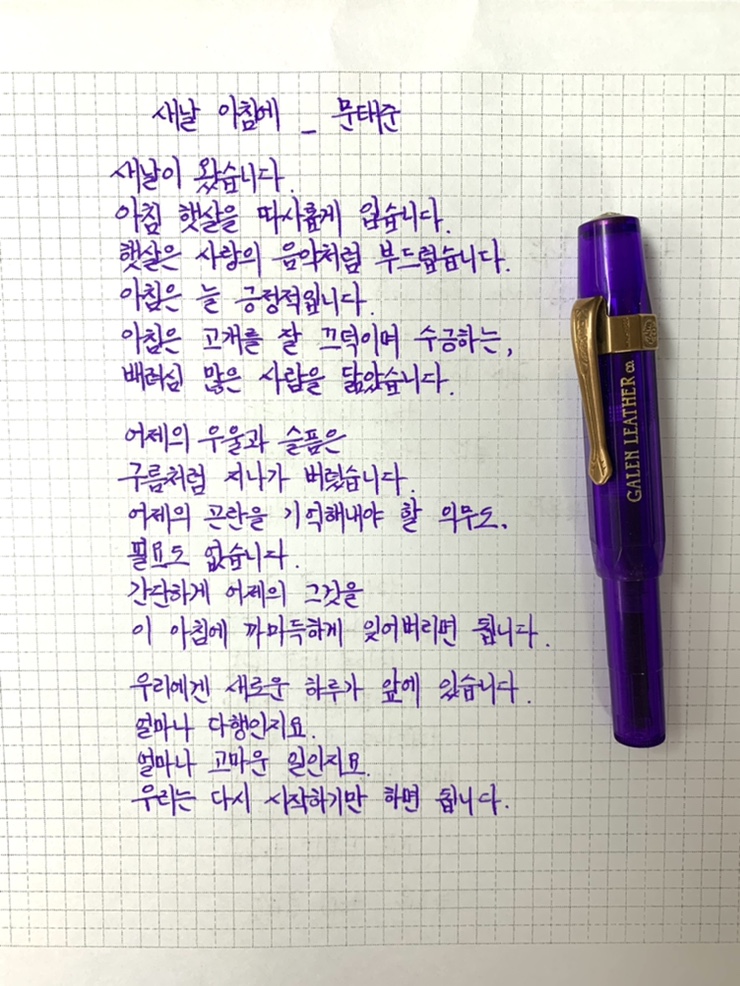 새날 아침에 _ 문태준
새날이 왔습니다.
아침 햇살을 따사롭게 입습니다.
햇살은 사랑의 음악처럼 부드럽습니다.
아침은 늘 긍정적입니다.
아침은 고개를 잘 끄덕이며 수긍하는,
배려심 많은 사람을 닮았습니다.
어제의 우울과 슬픔은
구름처럼 지나가 버렸습니다.
어제의 곤란을 기억해내야 할 의무도,
필요도 없습니다.
간단하게 어제의 그것을
이 아침에 까마득하게 잊어버리면 됩니다.
우리에겐 새로운 하루가 앞에 있습니다.
얼마나 다행인지요.
얼마나 고마운 일인지요.
우리는 다시 시작하기만 하면 됩니다.
GALEN LEATHER co